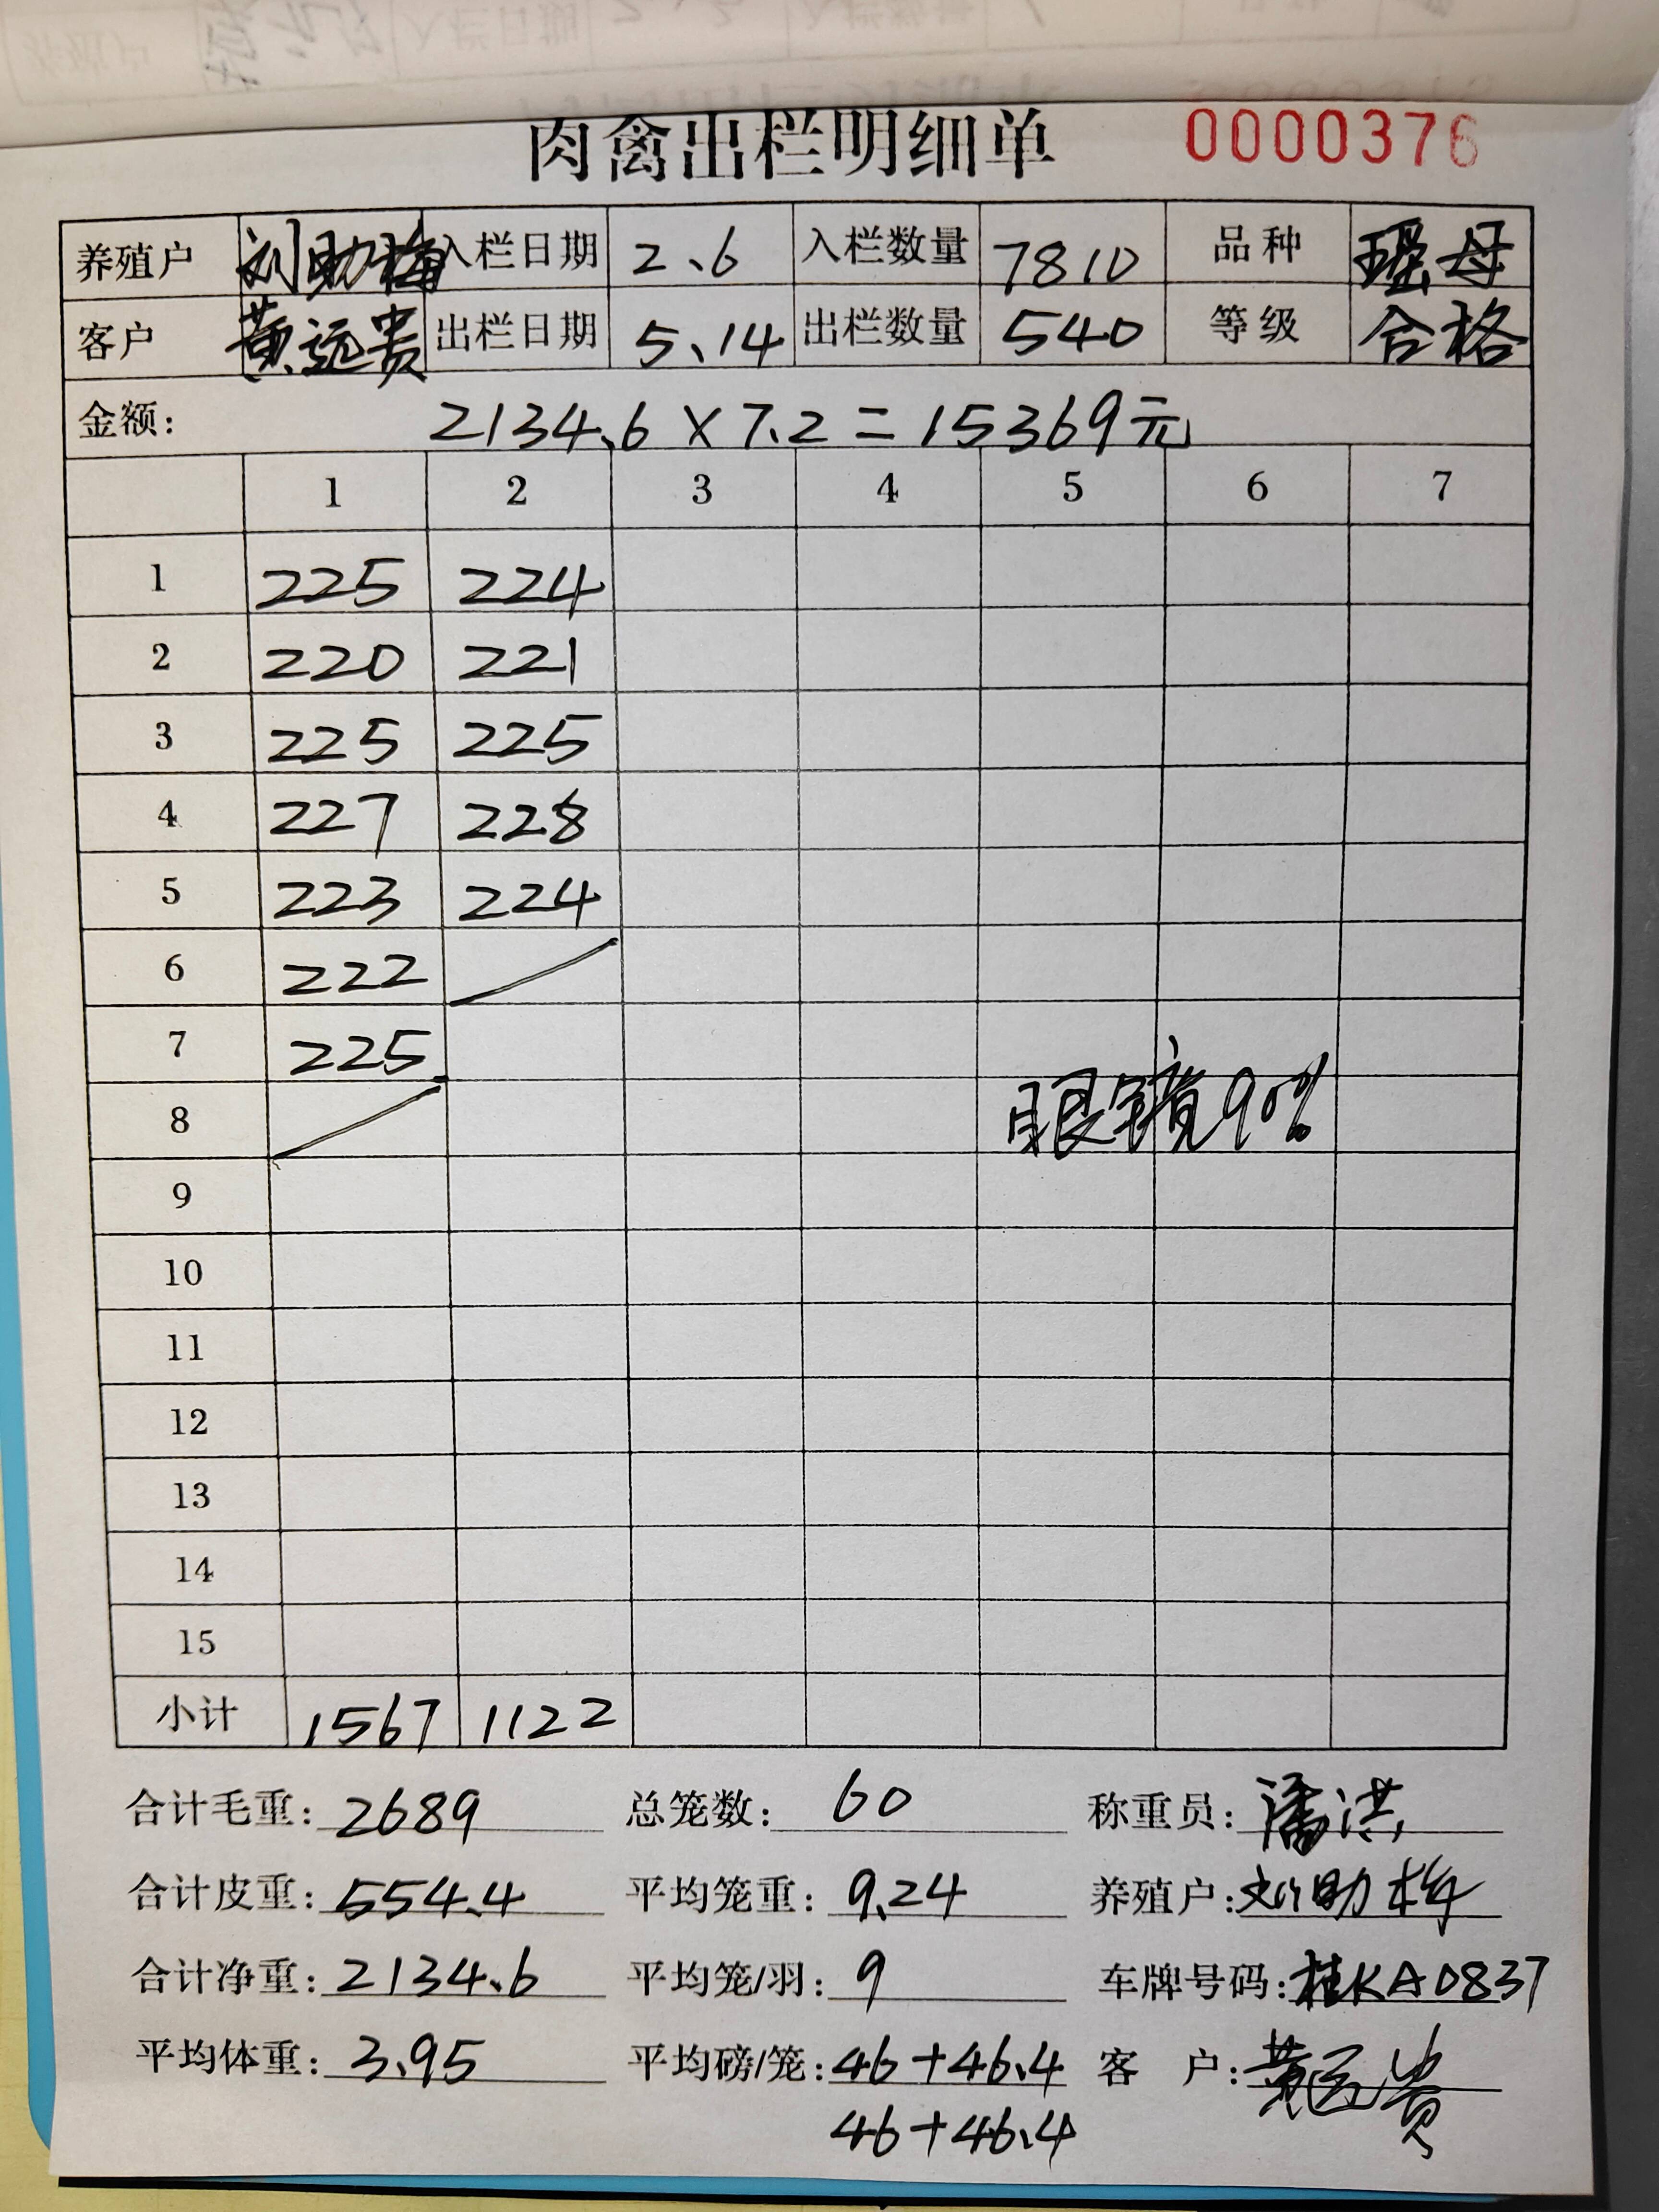 肉禽出栏明细单 0000376
养殖户 刘助梅 入栏日期 2.6 入栏数量 7810 品种 瑶母
客户 黄远贵 出栏日期 5.14 出栏数量 540 等级 合格
金额: 2134.6×7.2=15369元
1 2 3 4 5 6 7
1 225 224
2 220 221
3 225 225
4 227 228
5 223 224
6 222
7 225
8 眼镜90%
9
10
11
12
13
14
15
小计 1567 1122
合计毛重: 2689 总笼数: 60 称重员: 潘洪
合计皮重: 554.4 平均笼重: 9.24 养殖户: 刘助梅
合计净重: 2134.6 平均笼/羽: 9 车牌号码: 桂KA0837
平均体重: 3.95 平均磅/笼: 46+46.4 客户: 黄远贵
46+46.4